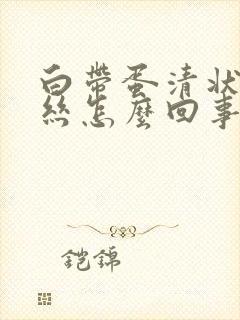 白帶蛋清狀
絲怎麼回事
铠錦